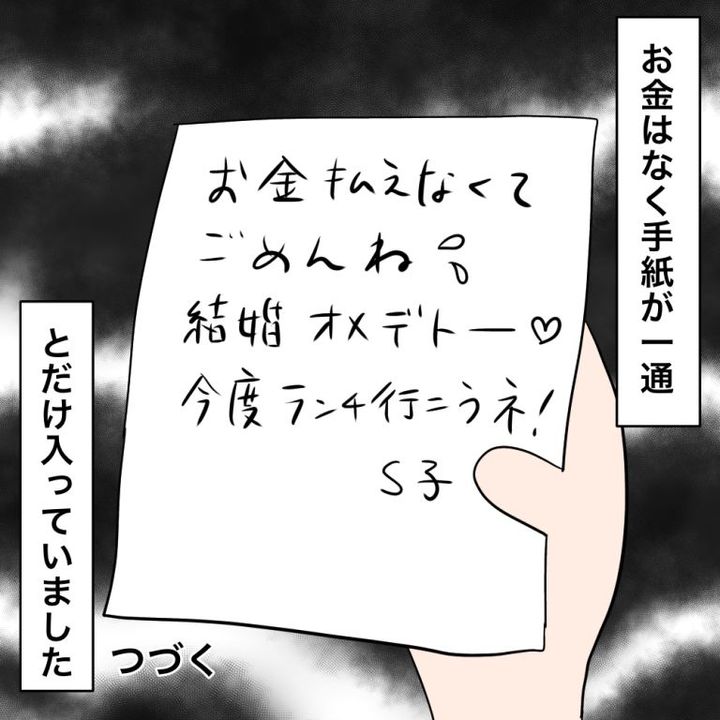 お金はなく手紙が一通
お金払えなくて
ごめんね
結婚オメデトー♡
今度ランチ行こうネ!
S子
とだけ入っていました
つづく